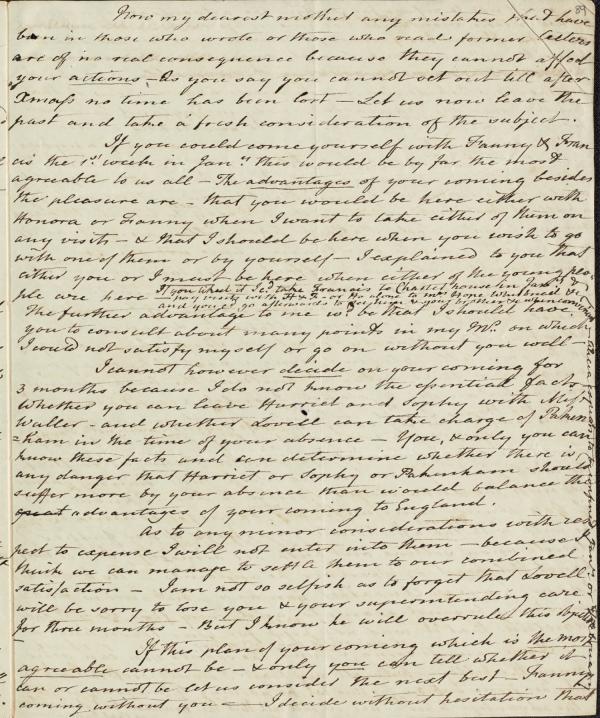 89
Now my dearest mother any mistakes that have
been in those who wrote or those who read former letters
are of no real consequence because they cannot affect
your actions – As you say you cannot set out till after
Xmass no time has been lost – Let us now leave the
past and take a fresh consideration of the subject.
If you could come yourself with Fanny & Fran
cis the 1st week in Jany this would be by far the most
agreeable to us all – The advantages of your coming besides
the pleasure are – that you would be here either with
Honora or Fanny when I want to take either of them on
any visits – & that I should be here when you wish to go
with one of them or by yourself – I explained to you that
either you or I must be here when either of the young peo
ple are here –
If you liked it I cd take Francis to Charter house in Jany &
pay visits with H & F – or Ho alone to
and you go a maid to
The further advantage to me wd be that I should have
you to consult about many points in my Ms. on which
I would not satisfy myself or go on without you well –
I cannot however decide on your coming for
3 months because I do not know the essential facts
whether you can leave Harriet and Sophy with Miss
Waller – and whether Lovell can take charge of Paken
ham in the time of your absence – You, & only you can
know these facts and can determine whether there is
any danger that Harriet or Sophy or Pakenham should
suffer more by your absence than would balance the
great advantages of your coming to England.
As to any minor considerations with res
pect to expense I will not enter into them – because I
think we can manage to settle them to our combined
satisfaction – I am not so selfish as to forget that Lovell
will be sorry to lose you & your superintending care
for three months – But I know he will overrule this
If this plan of your coming which is the most
agreeable cannot be – & only you can tell whether it
can or cannot be let us consider the next best – Fanny
coming without you – I decide without hesitation that